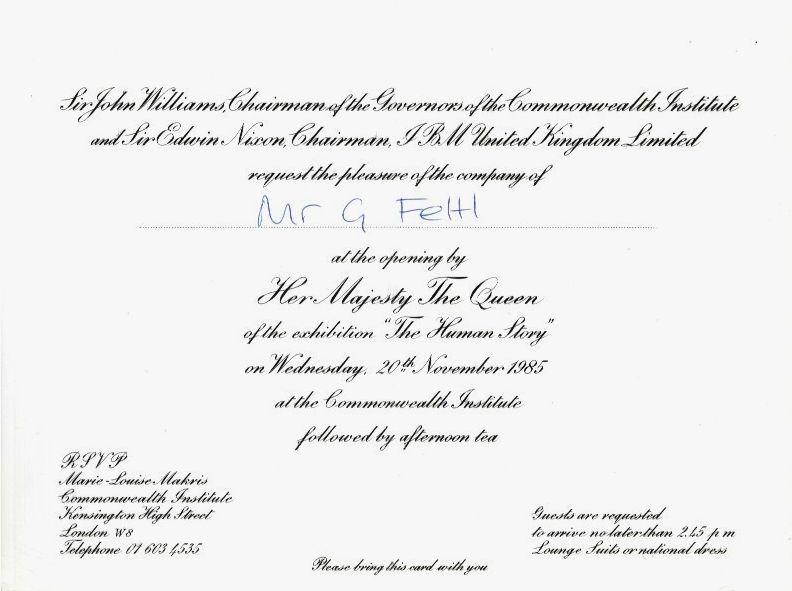 Sir John Williams, Chairman of the Governors of the Commonwealth Institute
and Sir Edwin Nixon, Chairman, IBM United Kingdom Limited
request the pleasure of the company of
Mr G Feltl
at the opening by
Her Majesty The Queen
of the exhibition "The Human Story"
on Wednesday, 20th November 1985
at the Commonwealth Institute
followed by afternoon tea
RSVP
Marie-Louise Makris
Commonwealth Institute
Kensington High Street
London W8
Telephone 01 603 4535
Guests are requested
to arrive no later than 2.45 p m
Lounge Suits or national dress
Please bring this card with you